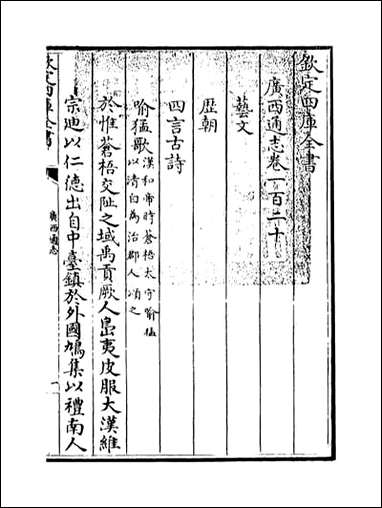 欽定四庫全書
廣西通志卷一百二十
藝文
歴朝
四言古詩
喻猛歌漢和帝時蒼梧太守喻猛
以清白為治郡人頌之
於惟蒼梧交阯之域禹貢厥人島夷皮服大漢維
宗迪以仁德出自中臺鎮於外國鳩集以禮南人
欽定四庫全書
廣西通志